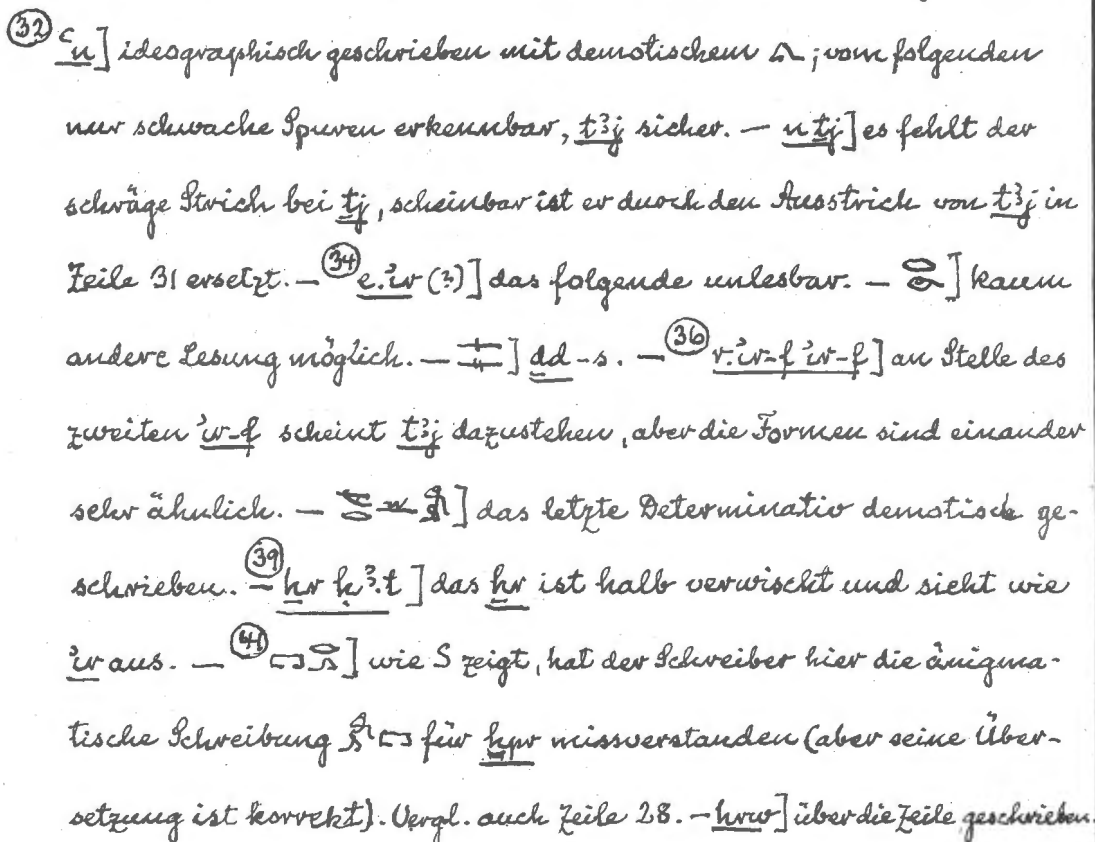 (32) ꜥn] ideographisch geschrieben mit demotischem 𓂻; vom folgenden
nur schwache Spuren erkennbar, tꜣj sicher. — n tj] es fehlt der
schräge Strich bei tj, scheinbar ist er durch den Ausstrich von tꜣj in
Zeile 31 ersetzt. — (34) e.ʾir (?)] das folgende unlesbar. — ] kaum
andere Lesung möglich. — ] dd-s. — (36) r.ʾir-f ʾiw-f] an Stelle des
zweiten ʾiw-f scheint tꜣj dazustehen, aber die Formen sind einander
sehr ähnlich. — ] das letzte Determinativ demotisch ge-
schrieben. — (39) ẖr ẖꜣ.t] das ẖr ist halb verwischt und sieht wie
ʾir aus. — (41) ] wie S zeigt, hat der Schreiber hier die änigma-
tische Schreibung für ḫpr missverstanden (aber seine Über-
setzung ist korrekt). Vergl. auch Zeile 28. — hrw] über die Zeile geschrieben.